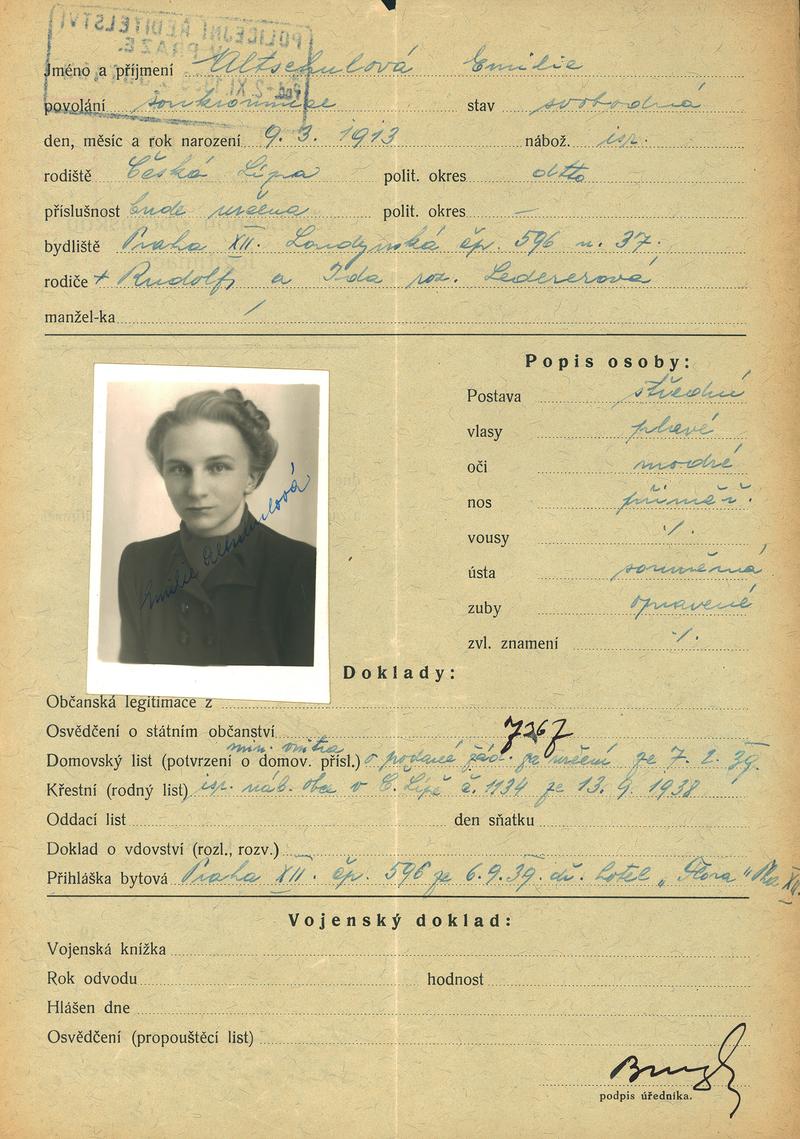 POLICEJNÍ ŘEDITELSTVÍ
V PRAZE.
Jméno a příjmení Altschulová Emilie
povolání soukromnice stav svobodná
den, měsíc a rok narození 9. 3. 1913 nábož. isr.
rodiště Česká Lípa polit. okres dtto
příslušnost bude určena polit. okres —
bydliště Praha XII. Londýnská čp. 596 n. 37.
rodiče + Rudolf a Ida roz. Ledererová
manžel-ka /
Popis osoby:
Postava střední
vlasy plavé
oči modré
nos přiměř.
vousy ·/·
ústa souměrná
zuby opravené
zvl. znamení ·/·
Emilie Altschulová
Doklady:
Občanská legitimace z
Osvědčení o státním občanství 7267
min. vnitra
Domovský list (potvrzení o domov. přísl.) o podané žád. za určení ze 7. 2. 39.
Křestní (rodný list) isr. náb. obce v Č. Lípě č. 1134 ze 13. 9. 1938
Oddací list den sňatku
Doklad o vdovství (rozl., rozv.)
Přihláška bytová Praha XII. čp. 596 ze 6. 9. 39. dř. hotel „Flora" Pha XII.
Vojenský doklad:
Vojenská knížka
Rok odvodu hodnost
Hlášen dne
Osvědčení (propouštěcí list)
podpis úředníka.